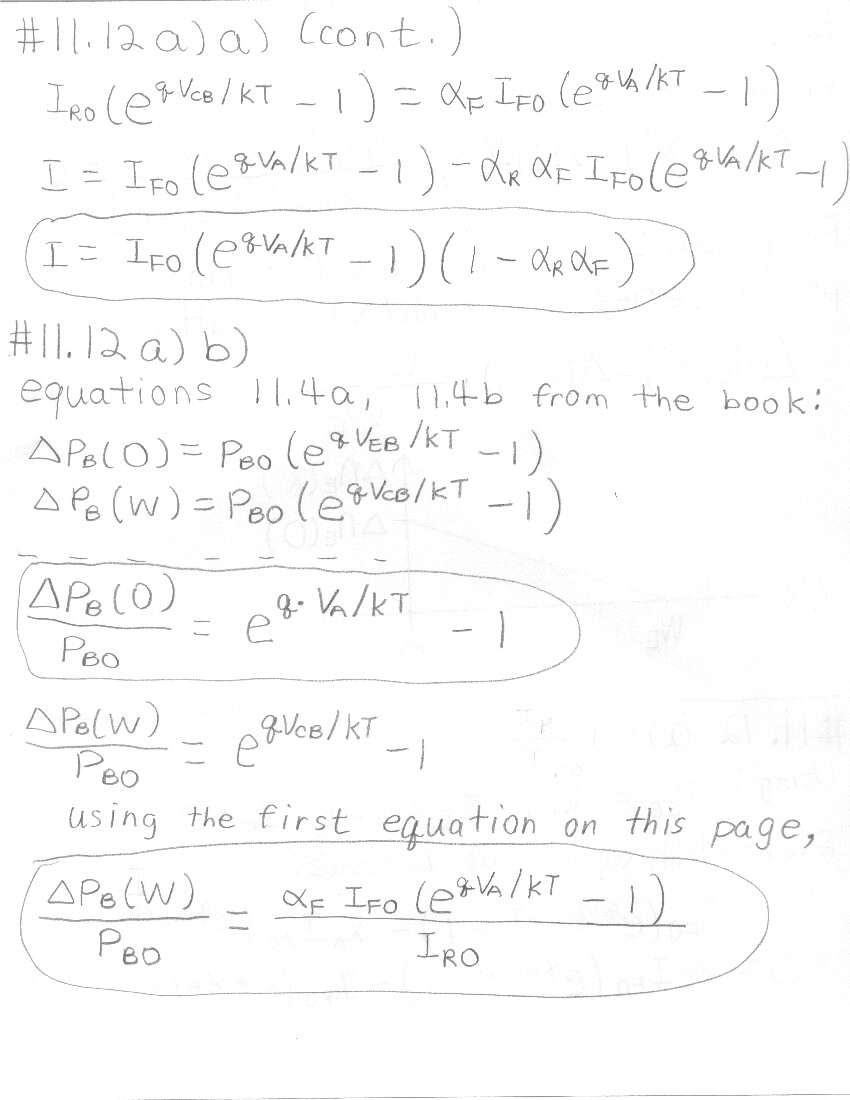 #11.12 a) a) (cont.)
I_RO (e^{qV_CB/kT} - 1) = α_F I_FO (e^{qV_A/kT} - 1)
I = I_FO (e^{qV_A/kT} - 1) - α_R α_F I_FO (e^{qV_A/kT} - 1)
I = I_FO (e^{qV_A/kT} - 1) (1 - α_R α_F)
#11.12 a) b)
equations 11.4a, 11.4b from the book:
ΔP_B(0) = P_BO (e^{qV_EB/kT} - 1)
ΔP_B(W) = P_BO (e^{qV_CB/kT} - 1)
ΔP_B(0)/P_BO = e^{q·V_A/kT} - 1
ΔP_B(W)/P_BO = e^{qV_CB/kT} - 1
using the first equation on this page,
ΔP_B(W)/P_BO = α_F I_FO (e^{qV_A/kT} - 1)/I_RO